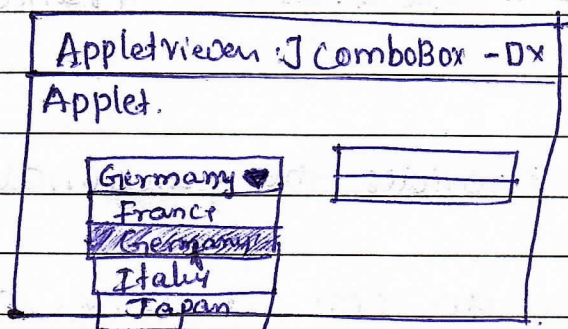 Appletviewer : J ComboBox - □x
Applet.
Germany
France
Germany
Italy
Japan